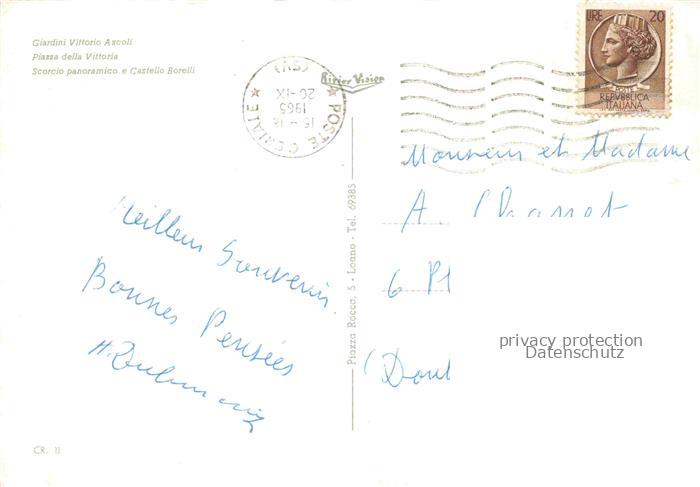 Giardini Vittorio Ascoli
Piazza della Vittoria
Scorcio panoramico e Castello Borelli
Rivier Vision
POSTE CERIALE (AS)
15-16
1965
20-IX
LIRE 20
POSTE
REPVBBLICA
ITALIANA
Monsieur et Madame
A.
6 Pl
Meilleur Souvenir
Bonnes Pensées
H.
Piazza Rocca, 5 - Loano - Tel. 69385
privacy protection
Datenschutz
CR. 11